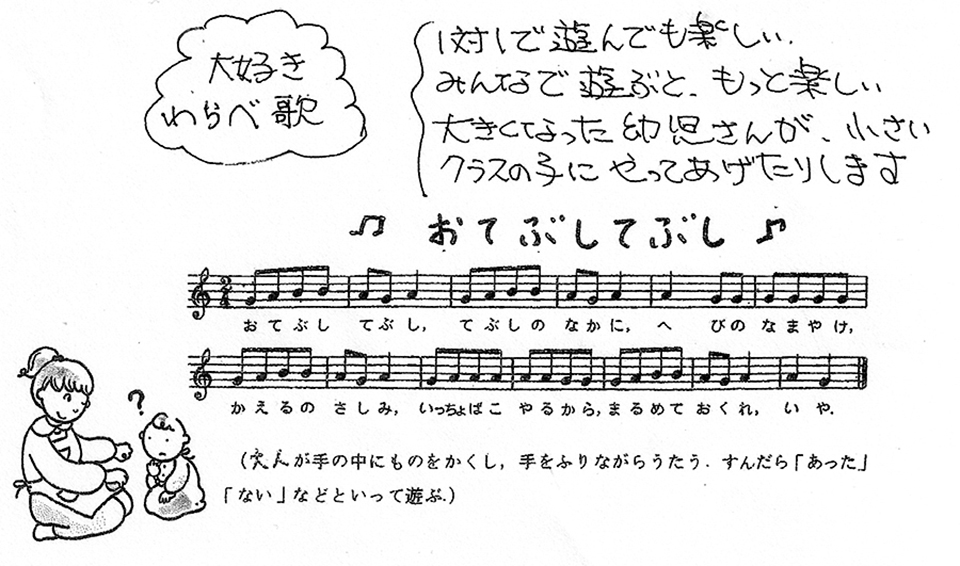 大好き
わらべ歌
1対1で遊んでも楽しい.
みんなで遊ぶと、もっと楽しい
大きくなった幼児さんが、小さい
クラスの子にやってあげたりします
♫ おてぶしてぶし ♪
おてぶし てぶし, てぶしの なかに, へ びの なまやけ,
かえるの さしみ, いっちょばこ やるから, まるめて おくれ, い や.
?
(大人が手の中にものをかくし, 手をふりながらうたう. すんだら「あった」
「ない」などといって遊ぶ.)